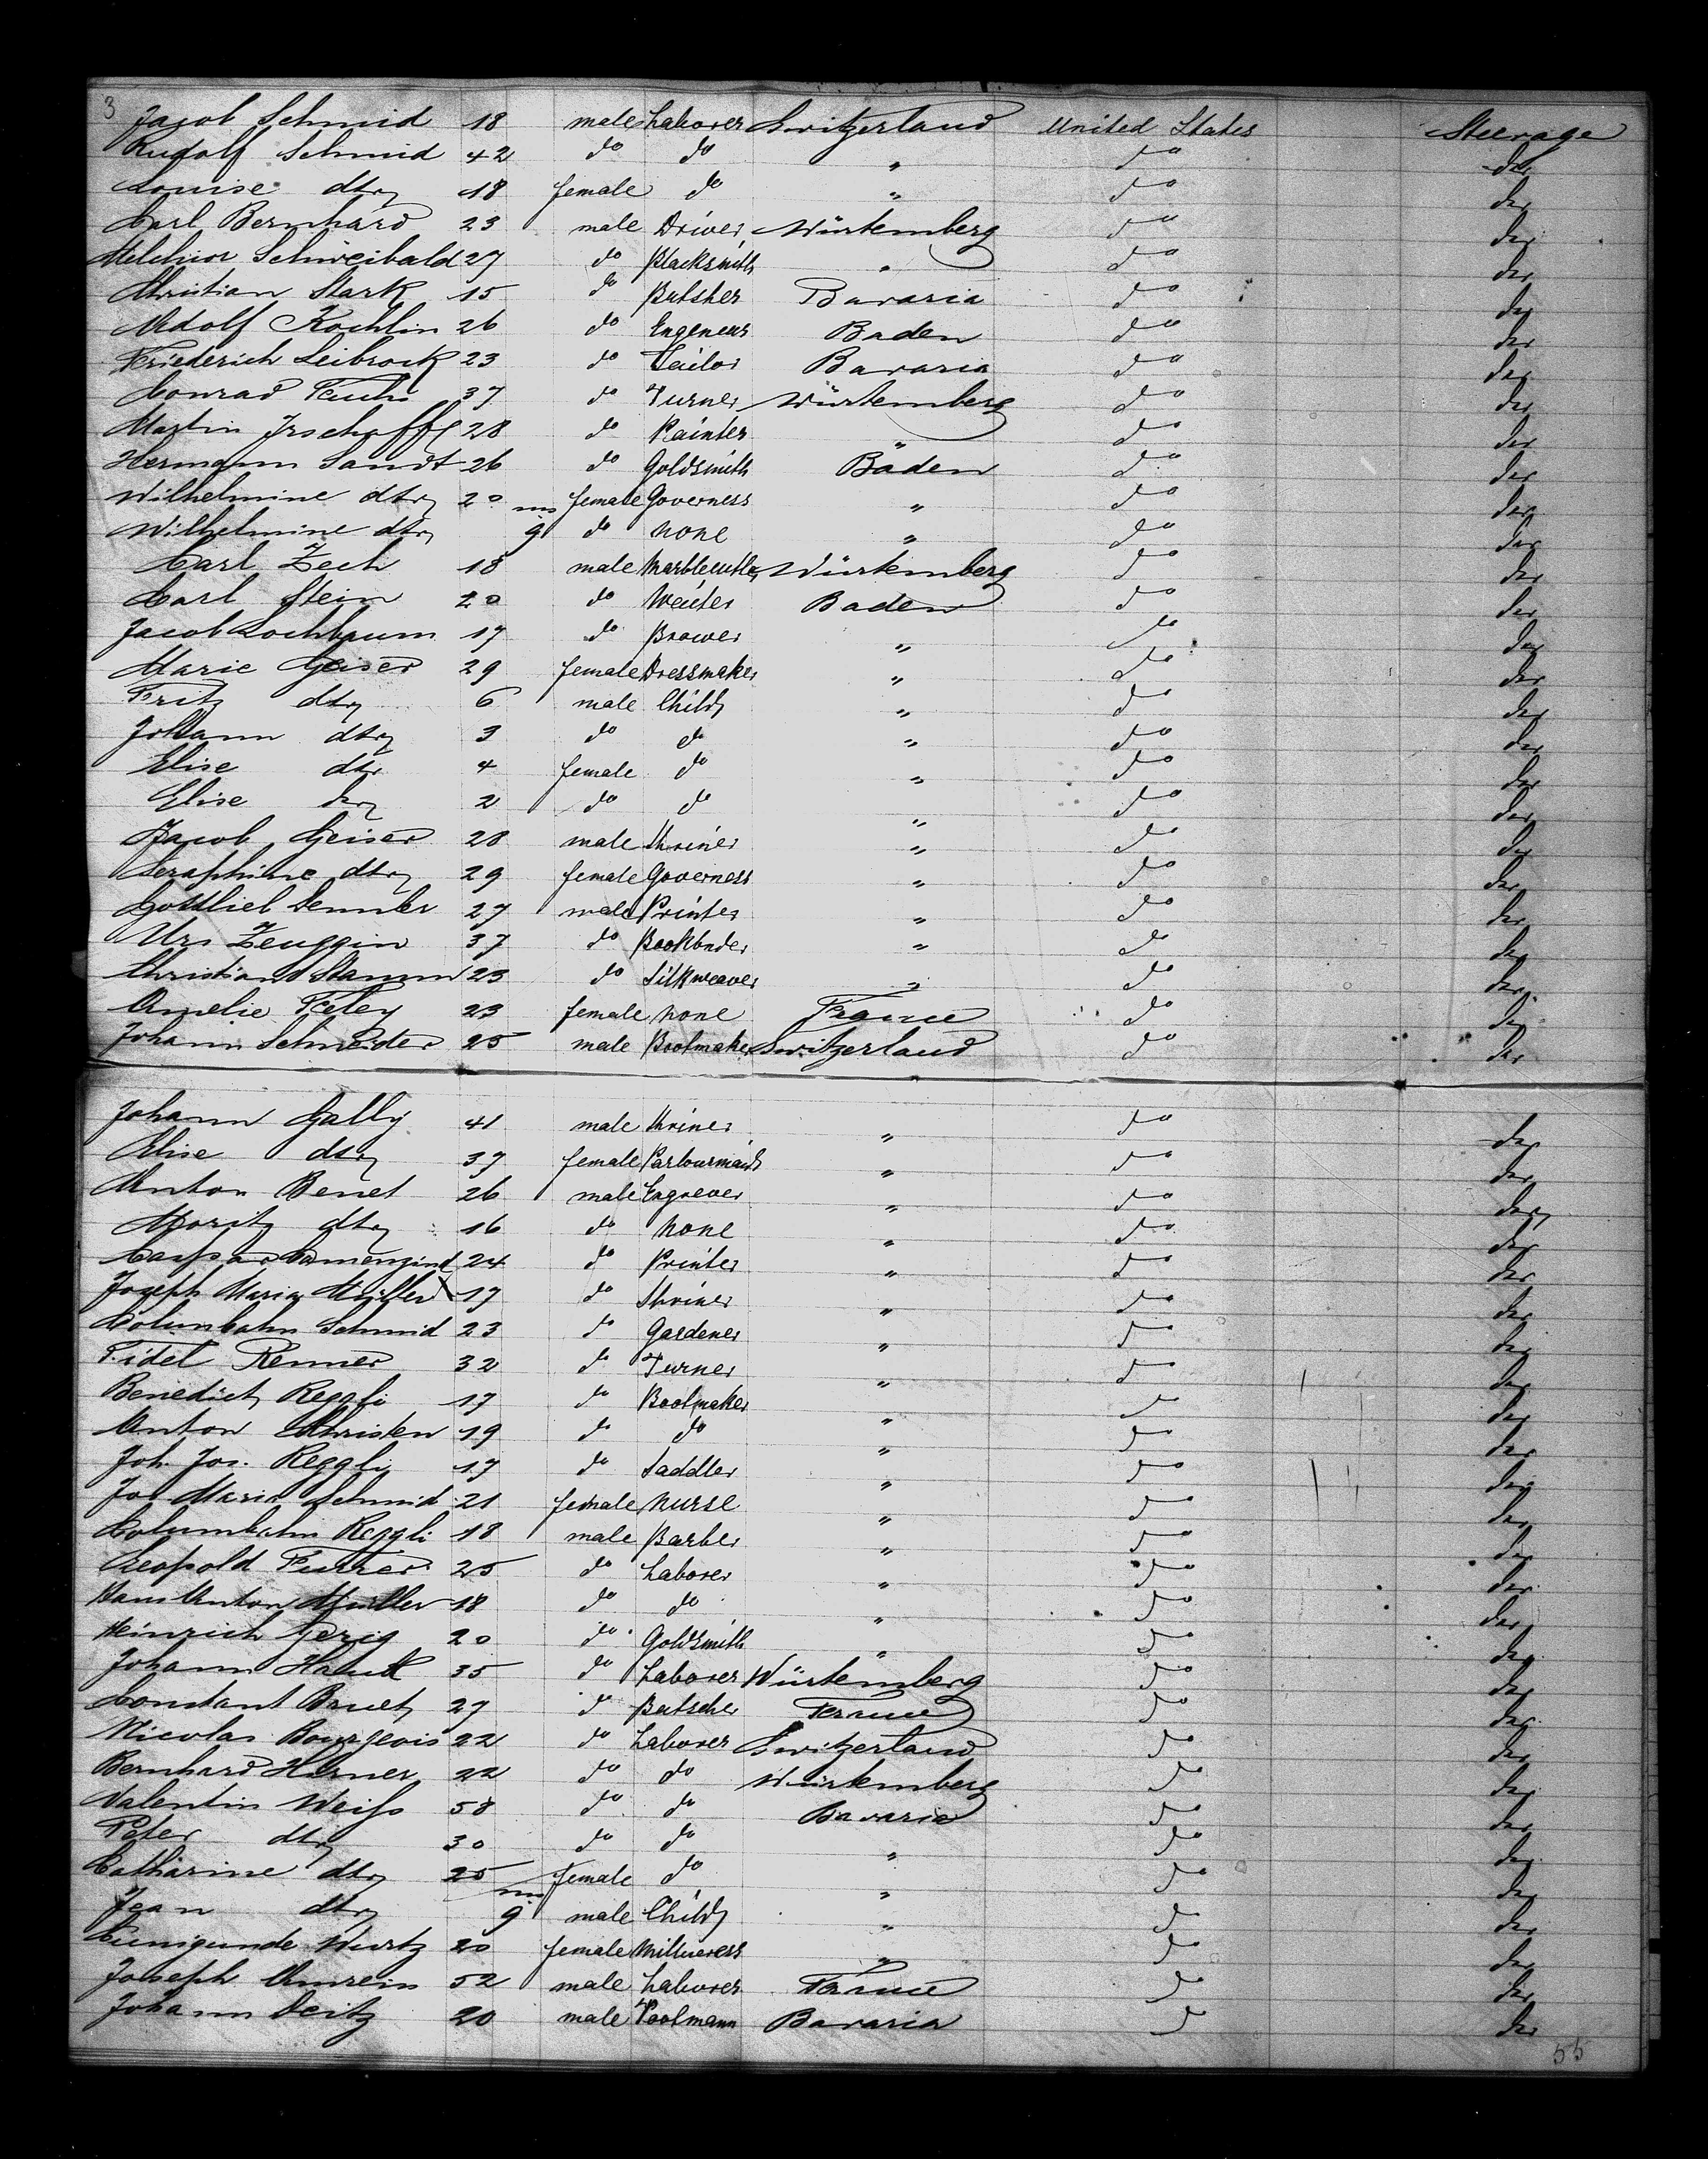 3
Jacob Schmid 18 male Laborer Switzerland United States Steerage
Rudolf Schmid 42 do do " do do
Louise dtr 18 female do " do do
Carl Bernhard 23 male Driver Würtemberg do do
Melchior Schweibald 27 do Blacksmith " do do
Christian Stark 15 do Butsher Bavaria do do
Adolf Kochlin 26 do Engeneur Baden do do
Friederich Leibrock 23 do Tailor Bavaria do do
Conrad Fuchs 37 do Turner Würtemberg do do
Martin 28 do Painter " do do
Hermann Sandt 26 do Goldsmith Baden do do
Wilhelmine dtr 20 female Governess " do do
Wilhelmine dtr 9 ms do none " do do
Carl Zech 18 male Marblecutter Würtemberg do do
Carl Stein 20 do Weiter Baden do do
Jacob Lochbaum 17 do Brower " do do
Marie Geiser 29 female Dressmaker " do do
Fritz dtr 6 male Child " do do
Johann dtr 3 do do " do do
Elise dtr 4 female do " do do
Elise dtr 2 do do " do do
Jacob Geiser 28 male Shriner " do do
Seraphine dtr 29 female Governess " do do
Gottlieb Demmler 27 male Printer " do do
Urs Zeuggin 37 do Bookbnder " do do
Christian Stamm 23 do Silkweaver " do do
Amelie Feley 23 female none France do do
Johann Schneider 25 male Bootmaker Switzerland do do
Johann Gally 41 male Shriner " do do
Elise dtr 37 female Parlourmaid " do do
Anton Benet 26 male Engrever " do do
Moritz dtr 16 do none " do do
Caspar Camenzind 24 do Printer " do do
Joseph Maria Müller 17 do Shriner " do do
Columbahn Schmid 23 do Gardener " do do
Fidel Renner 32 do Turner " do do
Benedict Reggli 17 do Bootmaker " do do
Anton Christen 19 do do " do do
Joh. Jos. Reggli 17 do Saddler " do do
Jos Maria Schmid 21 female nurse " do do
Columbahn Reggli 18 male Barber " do do
Leopold Furrer 25 do Laborer " do do
Hans Anton Müller 18 do do " do do
Heinrich Gerig 20 do Goldsmith " do do
Johann Hauck 35 do Laborer Würtemberg do do
Constant Bruet 27 do Butscher France do do
Nicolas Bourgeois 22 do Laborer Switzerland do do
Bernhard Hirner 22 do do Würtemberg do do
Valentin Weiss 58 do do Bavaria do do
Peter dtr 30 do do " do do
Catharine dtr 25 female do " do do
Jean dtr 9 ms male Child " do do
Cunigunde Wurtz 20 female Millneress " do do
Joseph Amrein 52 male Laborer France do do
Johann Deitz 20 male Poolmann Bavaria do do
55